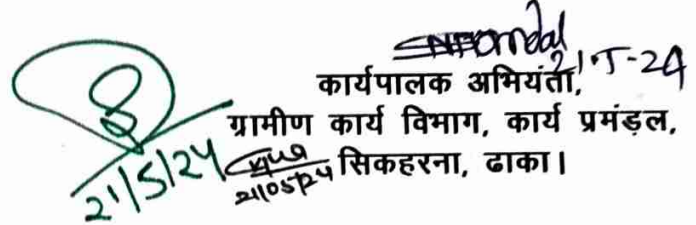 21.5-24
कार्यपालक अभियंता,
ग्रामीण कार्य विभाग, कार्य प्रमंड़ल,
सिकहरना, ढाका।
21/5/24
21/05/24